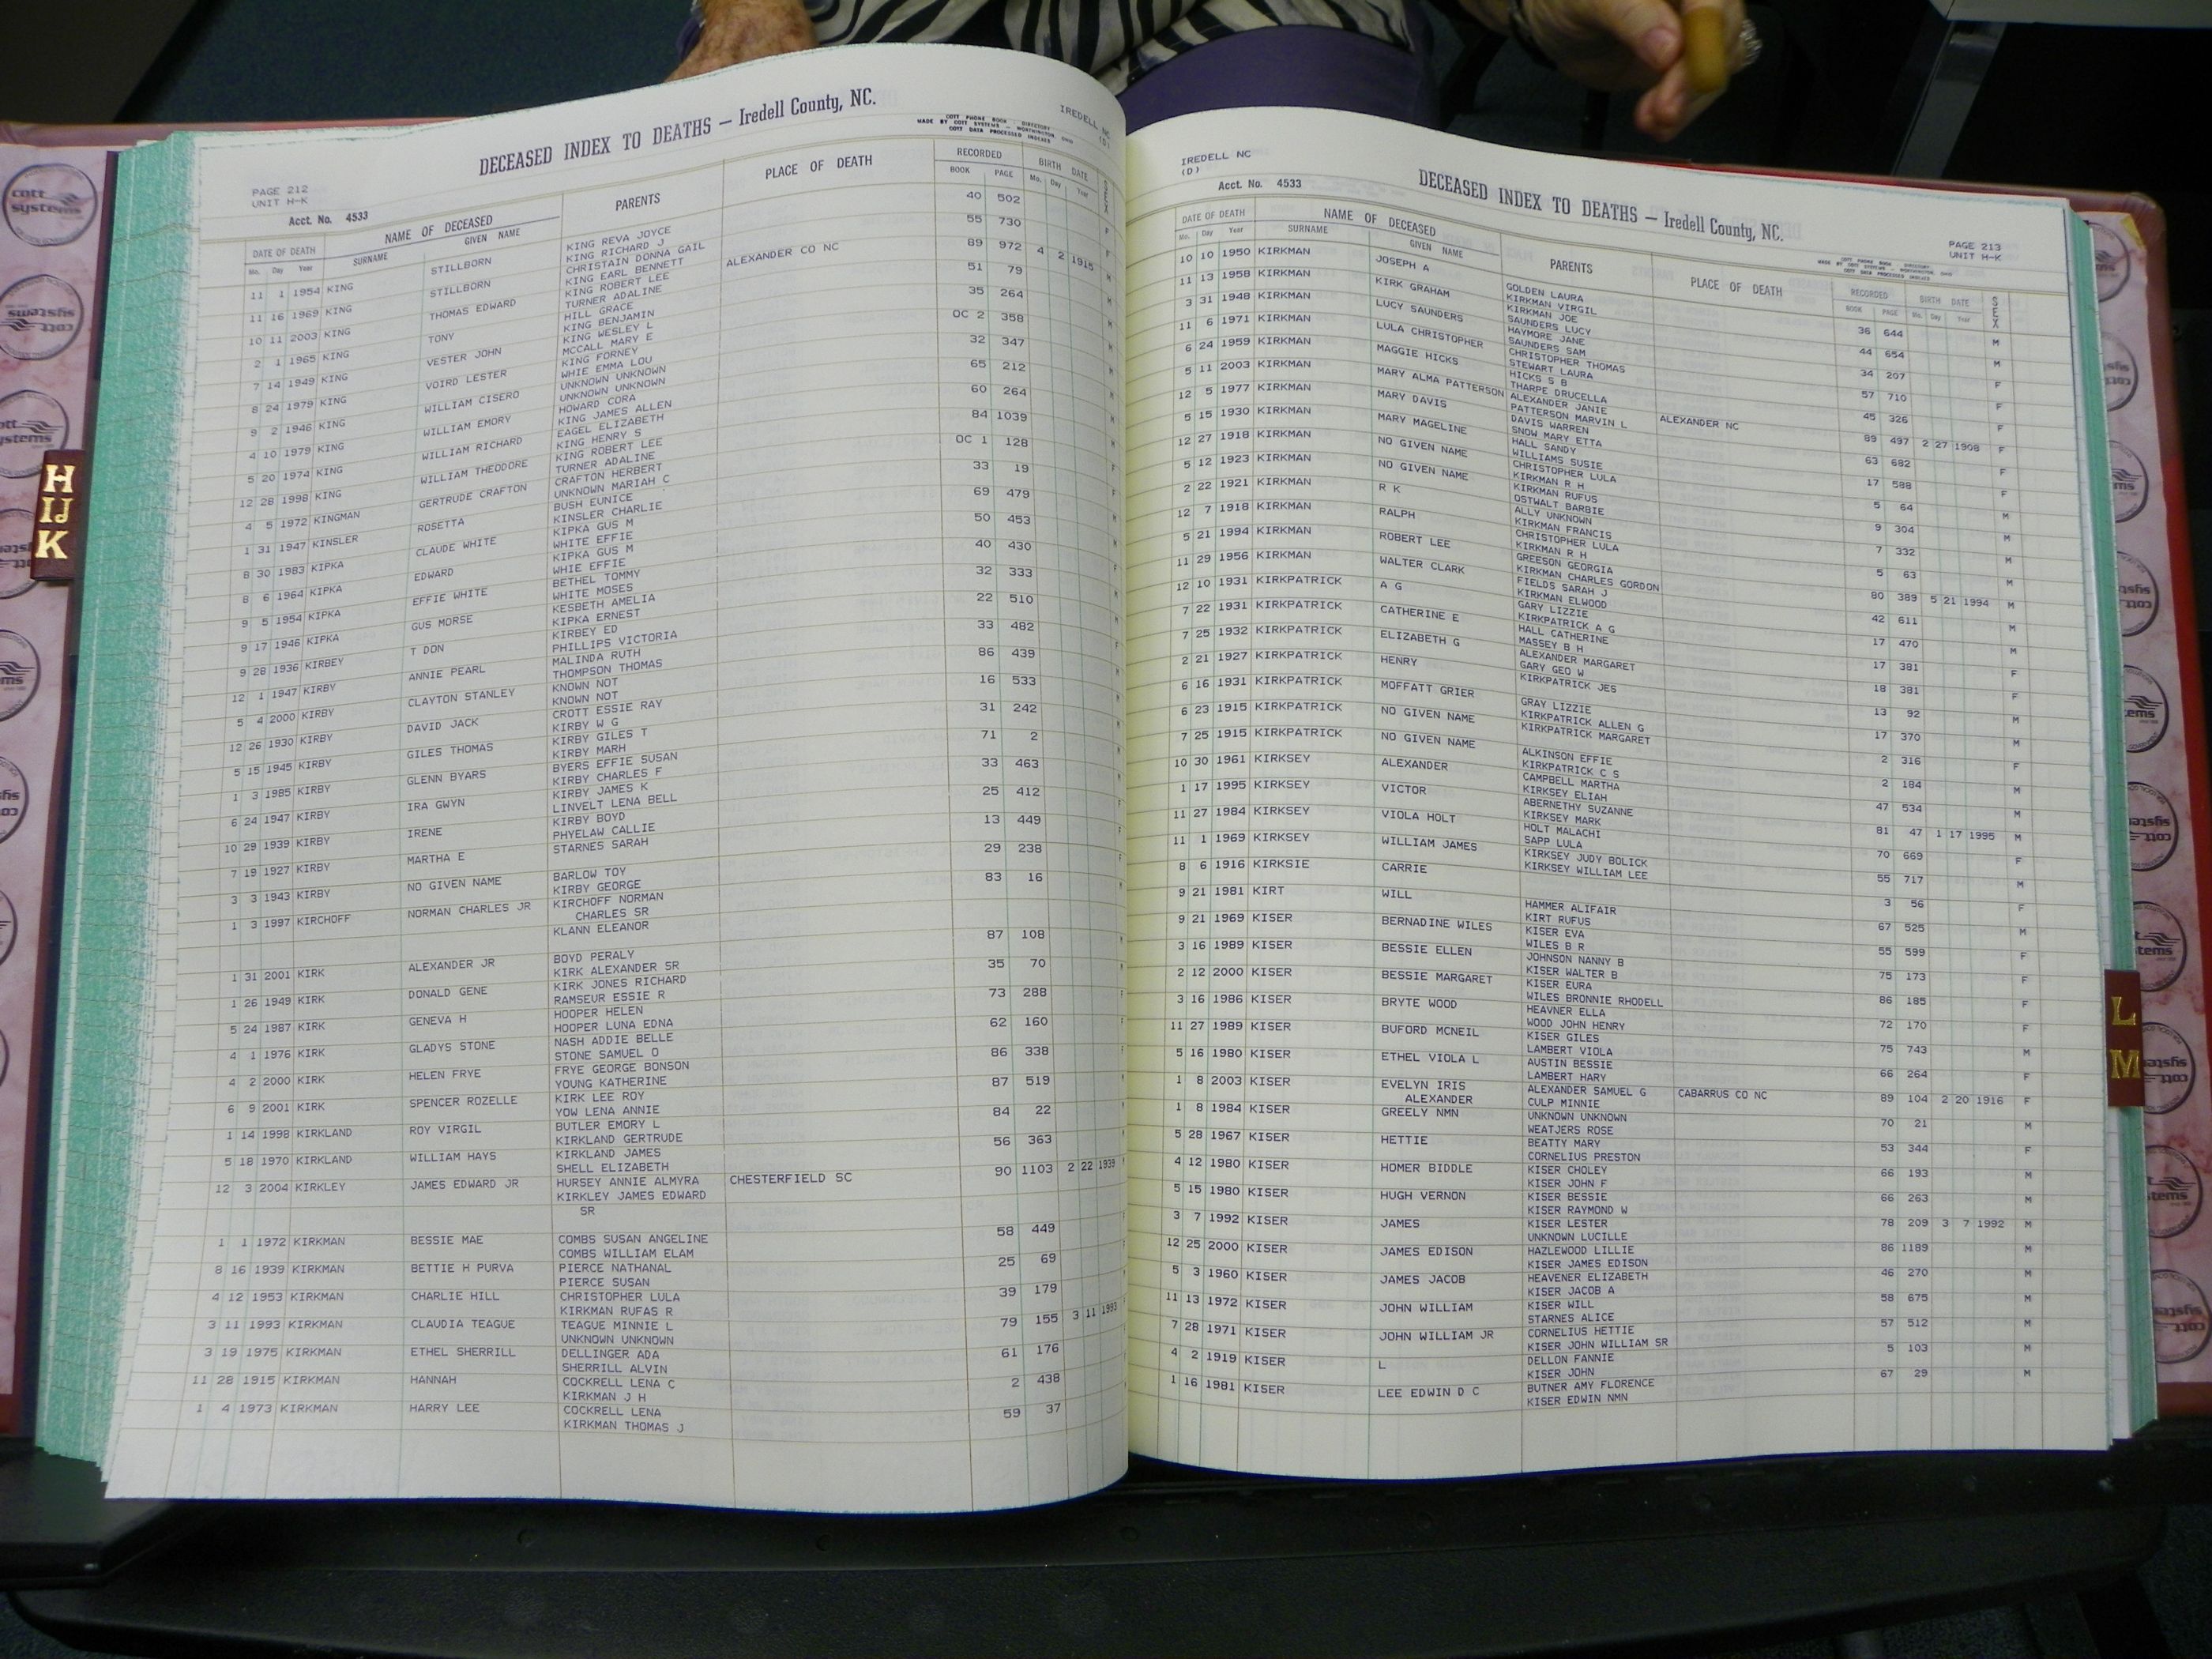 DECEASED INDEX TO DEATHS — Iredell County, NC.
IREDELL NC
(D)
COTT PHONE BOOK - DIRECTORY
MADE BY COTT SYSTEMS - WORTHINGTON, OHIO
COTT DATA PROCESSED INDEXES
PAGE 212
UNIT H-K
Acct. No. 4533
DATE OF DEATH NAME OF DECEASED PARENTS PLACE OF DEATH RECORDED BIRTH DATE SEX
Mo. Day Year SURNAME GIVEN NAME BOOK PAGE Mo. Day Year
11 1 1954 KING STILLBORN KING REVA JOYCE 40 502
KING RICHARD J
11 16 1969 KING STILLBORN CHRISTAIN DONNA GAIL 55 730 F
KING EARL BENNETT
10 11 2003 KING THOMAS EDWARD KING ROBERT LEE ALEXANDER CO NC 89 972 4 2 1915 M
TURNER ADALINE
2 1 1965 KING TONY HILL GRACE 51 79
KING BENJAMIN
7 14 1949 KING VESTER JOHN KING WESLEY L 35 264
MCCALL MARY E
8 24 1979 KING VOIRD LESTER KING FORNEY OC 2 358
WHIE EMMA LOU
9 2 1946 KING WILLIAM CISERO UNKNOWN UNKNOWN 32 347
UNKNOWN UNKNOWN
4 10 1979 KING WILLIAM EMORY HOWARD CORA 65 212
KING JAMES ALLEN
5 20 1974 KING WILLIAM RICHARD EAGEL ELIZABETH 60 264
KING HENRY S
12 28 1998 KING WILLIAM THEODORE KING ROBERT LEE 84 1039
TURNER ADALINE
4 5 1972 KINGMAN GERTRUDE CRAFTON CRAFTON HERBERT OC 1 128
UNKNOWN MARIAH C
1 31 1947 KINSLER ROSETTA BUSH EUNICE 33 19
KINSLER CHARLIE
8 30 1983 KIPKA CLAUDE WHITE KIPKA GUS M 69 479
WHITE EFFIE
8 6 1964 KIPKA EDWARD KIPKA GUS M 50 453
WHIE EFFIE
9 5 1954 KIPKA EFFIE WHITE BETHEL TOMMY 40 430
WHITE MOSES
9 17 1946 KIPKA GUS MORSE KESBETH AMELIA 32 333
KIPKA ERNEST
9 28 1936 KIRBEY T DON KIRBEY ED 22 510
PHILLIPS VICTORIA
12 1 1947 KIRBY ANNIE PEARL MALINDA RUTH 33 482
THOMPSON THOMAS
5 4 2000 KIRBY CLAYTON STANLEY KNOWN NOT 86 439
KNOWN NOT
12 26 1930 KIRBY DAVID JACK CROTT ESSIE RAY 16 533
KIRBY W G
5 15 1945 KIRBY GILES THOMAS KIRBY GILES T 31 242
KIRBY MARH
1 3 1985 KIRBY GLENN BYARS BYERS EFFIE SUSAN 71 2
KIRBY CHARLES F
6 24 1947 KIRBY IRA GWYN KIRBY JAMES K 33 463
LINVELT LENA BELL
10 29 1939 KIRBY IRENE KIRBY BOYD 25 412
PHYELAW CALLIE
7 19 1927 KIRBY MARTHA E STARNES SARAH 13 449
3 3 1943 KIRBY NO GIVEN NAME BARLOW TOY 29 238
KIRBY GEORGE
1 3 1997 KIRCHOFF NORMAN CHARLES JR KIRCHOFF NORMAN 83 16
CHARLES SR
KLANN ELEANOR
1 31 2001 KIRK ALEXANDER JR BOYD PERALY 87 108
KIRK ALEXANDER SR
1 26 1949 KIRK DONALD GENE KIRK JONES RICHARD 35 70
RAMSEUR ESSIE R
5 24 1987 KIRK GENEVA H HOOPER HELEN 73 288
HOOPER LUNA EDNA
4 1 1976 KIRK GLADYS STONE NASH ADDIE BELLE 62 160
STONE SAMUEL O
4 2 2000 KIRK HELEN FRYE FRYE GEORGE BONSON 86 338
YOUNG KATHERINE
6 9 2001 KIRK SPENCER ROZELLE KIRK LEE ROY 87 519
YOW LENA ANNIE
1 14 1998 KIRKLAND ROY VIRGIL BUTLER EMORY L 84 22
KIRKLAND GERTRUDE
5 18 1970 KIRKLAND WILLIAM HAYS KIRKLAND JAMES 56 363
SHELL ELIZABETH
12 3 2004 KIRKLEY JAMES EDWARD JR HURSEY ANNIE ALMYRA CHESTERFIELD SC 90 1103 2 22 1939 M
KIRKLEY JAMES EDWARD
SR
1 1 1972 KIRKMAN BESSIE MAE COMBS SUSAN ANGELINE 58 449
COMBS WILLIAM ELAM
8 16 1939 KIRKMAN BETTIE H PURVA PIERCE NATHANAL 25 69
PIERCE SUSAN
4 12 1953 KIRKMAN CHARLIE HILL CHRISTOPHER LULA 39 179
KIRKMAN RUFAS R
3 11 1993 KIRKMAN CLAUDIA TEAGUE TEAGUE MINNIE L 79 155 3 11 1993
UNKNOWN UNKNOWN
3 19 1975 KIRKMAN ETHEL SHERRILL DELLINGER ADA 61 176
SHERRILL ALVIN
11 28 1915 KIRKMAN HANNAH COCKRELL LENA C 2 438
KIRKMAN J H
1 4 1973 KIRKMAN HARRY LEE COCKRELL LENA 59 37
KIRKMAN THOMAS J
IREDELL NC
(D)
Acct. No. 4533
DECEASED INDEX TO DEATHS — Iredell County, NC.
PAGE 213
UNIT H-K
COTT PHONE BOOK - DIRECTORY
MADE BY COTT SYSTEMS - WORTHINGTON, OHIO
COTT DATA PROCESSED INDEXES
DATE OF DEATH NAME OF DECEASED PARENTS PLACE OF DEATH RECORDED BIRTH DATE SEX
Mo. Day Year SURNAME GIVEN NAME BOOK PAGE Mo. Day Year
10 10 1950 KIRKMAN JOSEPH A GOLDEN LAURA 36 644 M
KIRKMAN VIRGIL
11 13 1958 KIRKMAN KIRK GRAHAM KIRKMAN JOE 44 654 M
SAUNDERS LUCY
3 31 1948 KIRKMAN LUCY SAUNDERS HAYMORE JANE 34 207 F
SAUNDERS SAM
11 6 1971 KIRKMAN LULA CHRISTOPHER CHRISTOPHER THOMAS 57 710 F
STEWART LAURA
6 24 1959 KIRKMAN MAGGIE HICKS HICKS S B 45 326 F
THARPE DRUCELLA
5 11 2003 KIRKMAN MARY ALMA PATTERSON ALEXANDER JANIE ALEXANDER NC 89 497 2 27 1908 F
PATTERSON MARVIN L
12 5 1977 KIRKMAN MARY DAVIS DAVIS WARREN 63 682 F
SNOW MARY ETTA
5 15 1930 KIRKMAN MARY MAGELINE HALL SANDY 17 588 F
WILLIAMS SUSIE
12 27 1918 KIRKMAN NO GIVEN NAME CHRISTOPHER LULA 5 64 M
KIRKMAN R H
5 12 1923 KIRKMAN NO GIVEN NAME KIRKMAN RUFUS 9 304 M
OSTWALT BARBIE
2 22 1921 KIRKMAN R K ALLY UNKNOWN 7 332 M
KIRKMAN FRANCIS
12 7 1918 KIRKMAN RALPH CHRISTOPHER LULA 5 63 M
KIRKMAN R H
5 21 1994 KIRKMAN ROBERT LEE GREESON GEORGIA 80 389 5 21 1994 M
KIRKMAN CHARLES GORDON
11 29 1956 KIRKMAN WALTER CLARK FIELDS SARAH J 42 611 M
KIRKMAN ELWOOD
12 10 1931 KIRKPATRICK A G GARY LIZZIE 17 470 M
KIRKPATRICK A G
7 22 1931 KIRKPATRICK CATHERINE E HALL CATHERINE 17 381 F
MASSEY B H
7 25 1932 KIRKPATRICK ELIZABETH G ALEXANDER MARGARET 18 381 F
GARY GEO W
2 21 1927 KIRKPATRICK HENRY KIRKPATRICK JES 13 92 M
6 16 1931 KIRKPATRICK MOFFATT GRIER GRAY LIZZIE 17 370 M
KIRKPATRICK ALLEN G
6 23 1915 KIRKPATRICK NO GIVEN NAME KIRKPATRICK MARGARET 2 316 F
7 25 1915 KIRKPATRICK NO GIVEN NAME ALKINSON EFFIE 2 184 M
KIRKPATRICK C S
10 30 1961 KIRKSEY ALEXANDER CAMPBELL MARTHA 47 534 M
KIRKSEY ELIAH
1 17 1995 KIRKSEY VICTOR ABERNETHY SUZANNE 81 47 1 17 1995 M
KIRKSEY MARK
11 27 1984 KIRKSEY VIOLA HOLT HOLT MALACHI 70 669 F
SAPP LULA
11 1 1969 KIRKSEY WILLIAM JAMES KIRKSEY JUDY BOLICK 55 717 M
KIRKSEY WILLIAM LEE
8 6 1916 KIRKSIE CARRIE 3 56 F
9 21 1981 KIRT WILL HAMMER ALIFAIR 67 525 M
KIRT RUFUS
9 21 1969 KISER BERNADINE WILES KISER EVA 55 599 F
WILES B R
3 16 1989 KISER BESSIE ELLEN JOHNSON NANNY B 75 173 F
KISER WALTER B
2 12 2000 KISER BESSIE MARGARET KISER EURA 86 185 F
WILES BRONNIE RHODELL
3 16 1986 KISER BRYTE WOOD HEAVNER ELLA 72 170 F
WOOD JOHN HENRY
11 27 1989 KISER BUFORD MCNEIL KISER GILES 75 743 M
LAMBERT VIOLA
5 16 1980 KISER ETHEL VIOLA L AUSTIN BESSIE 66 264 F
LAMBERT HARY
1 8 2003 KISER EVELYN IRIS ALEXANDER SAMUEL G CABARRUS CO NC 89 104 2 20 1916 F
ALEXANDER CULP MINNIE
1 8 1984 KISER GREELY NMN UNKNOWN UNKNOWN 70 21 M
WEATJERS ROSE
5 28 1967 KISER HETTIE BEATTY MARY 53 344 F
CORNELIUS PRESTON
4 12 1980 KISER HOMER BIDDLE KISER CHOLEY 66 193 M
KISER JOHN F
5 15 1980 KISER HUGH VERNON KISER BESSIE 66 263 M
KISER RAYMOND W
3 7 1992 KISER JAMES KISER LESTER 78 209 3 7 1992 M
UNKNOWN LUCILLE
12 25 2000 KISER JAMES EDISON HAZLEWOOD LILLIE 86 1189 M
KISER JAMES EDISON
5 3 1960 KISER JAMES JACOB HEAVENER ELIZABETH 46 270 M
KISER JACOB A
11 13 1972 KISER JOHN WILLIAM KISER WILL 58 675 M
STARNES ALICE
7 28 1971 KISER JOHN WILLIAM JR CORNELIUS HETTIE 57 512 M
KISER JOHN WILLIAM SR
4 2 1919 KISER L DELLON FANNIE 5 103 M
KISER JOHN
1 16 1981 KISER LEE EDWIN D C BUTNER AMY FLORENCE 67 29 M
KISER EDWIN NMN
H
IJ
K
L
M
cott
systems